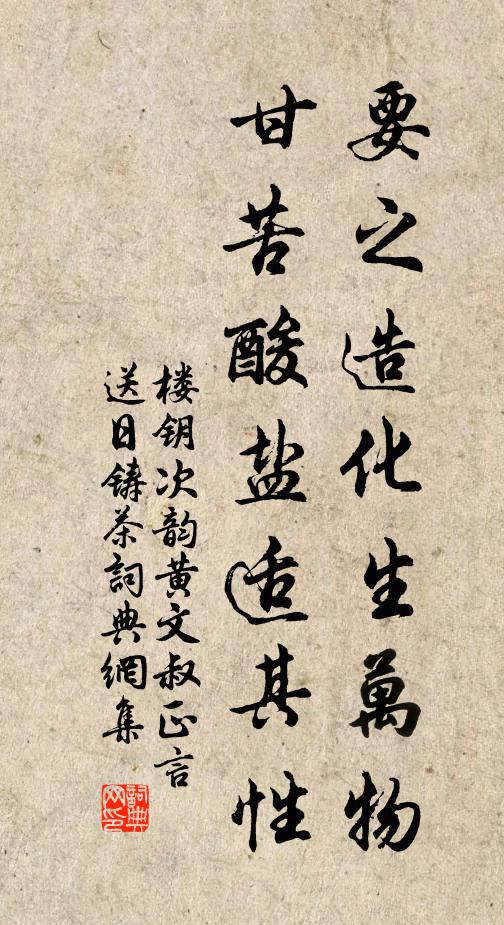 要之造化生萬物
甘苦酸盐适其性
楼钥次韵黄文叔正言
送日铸茶詞典網集
詞典网印